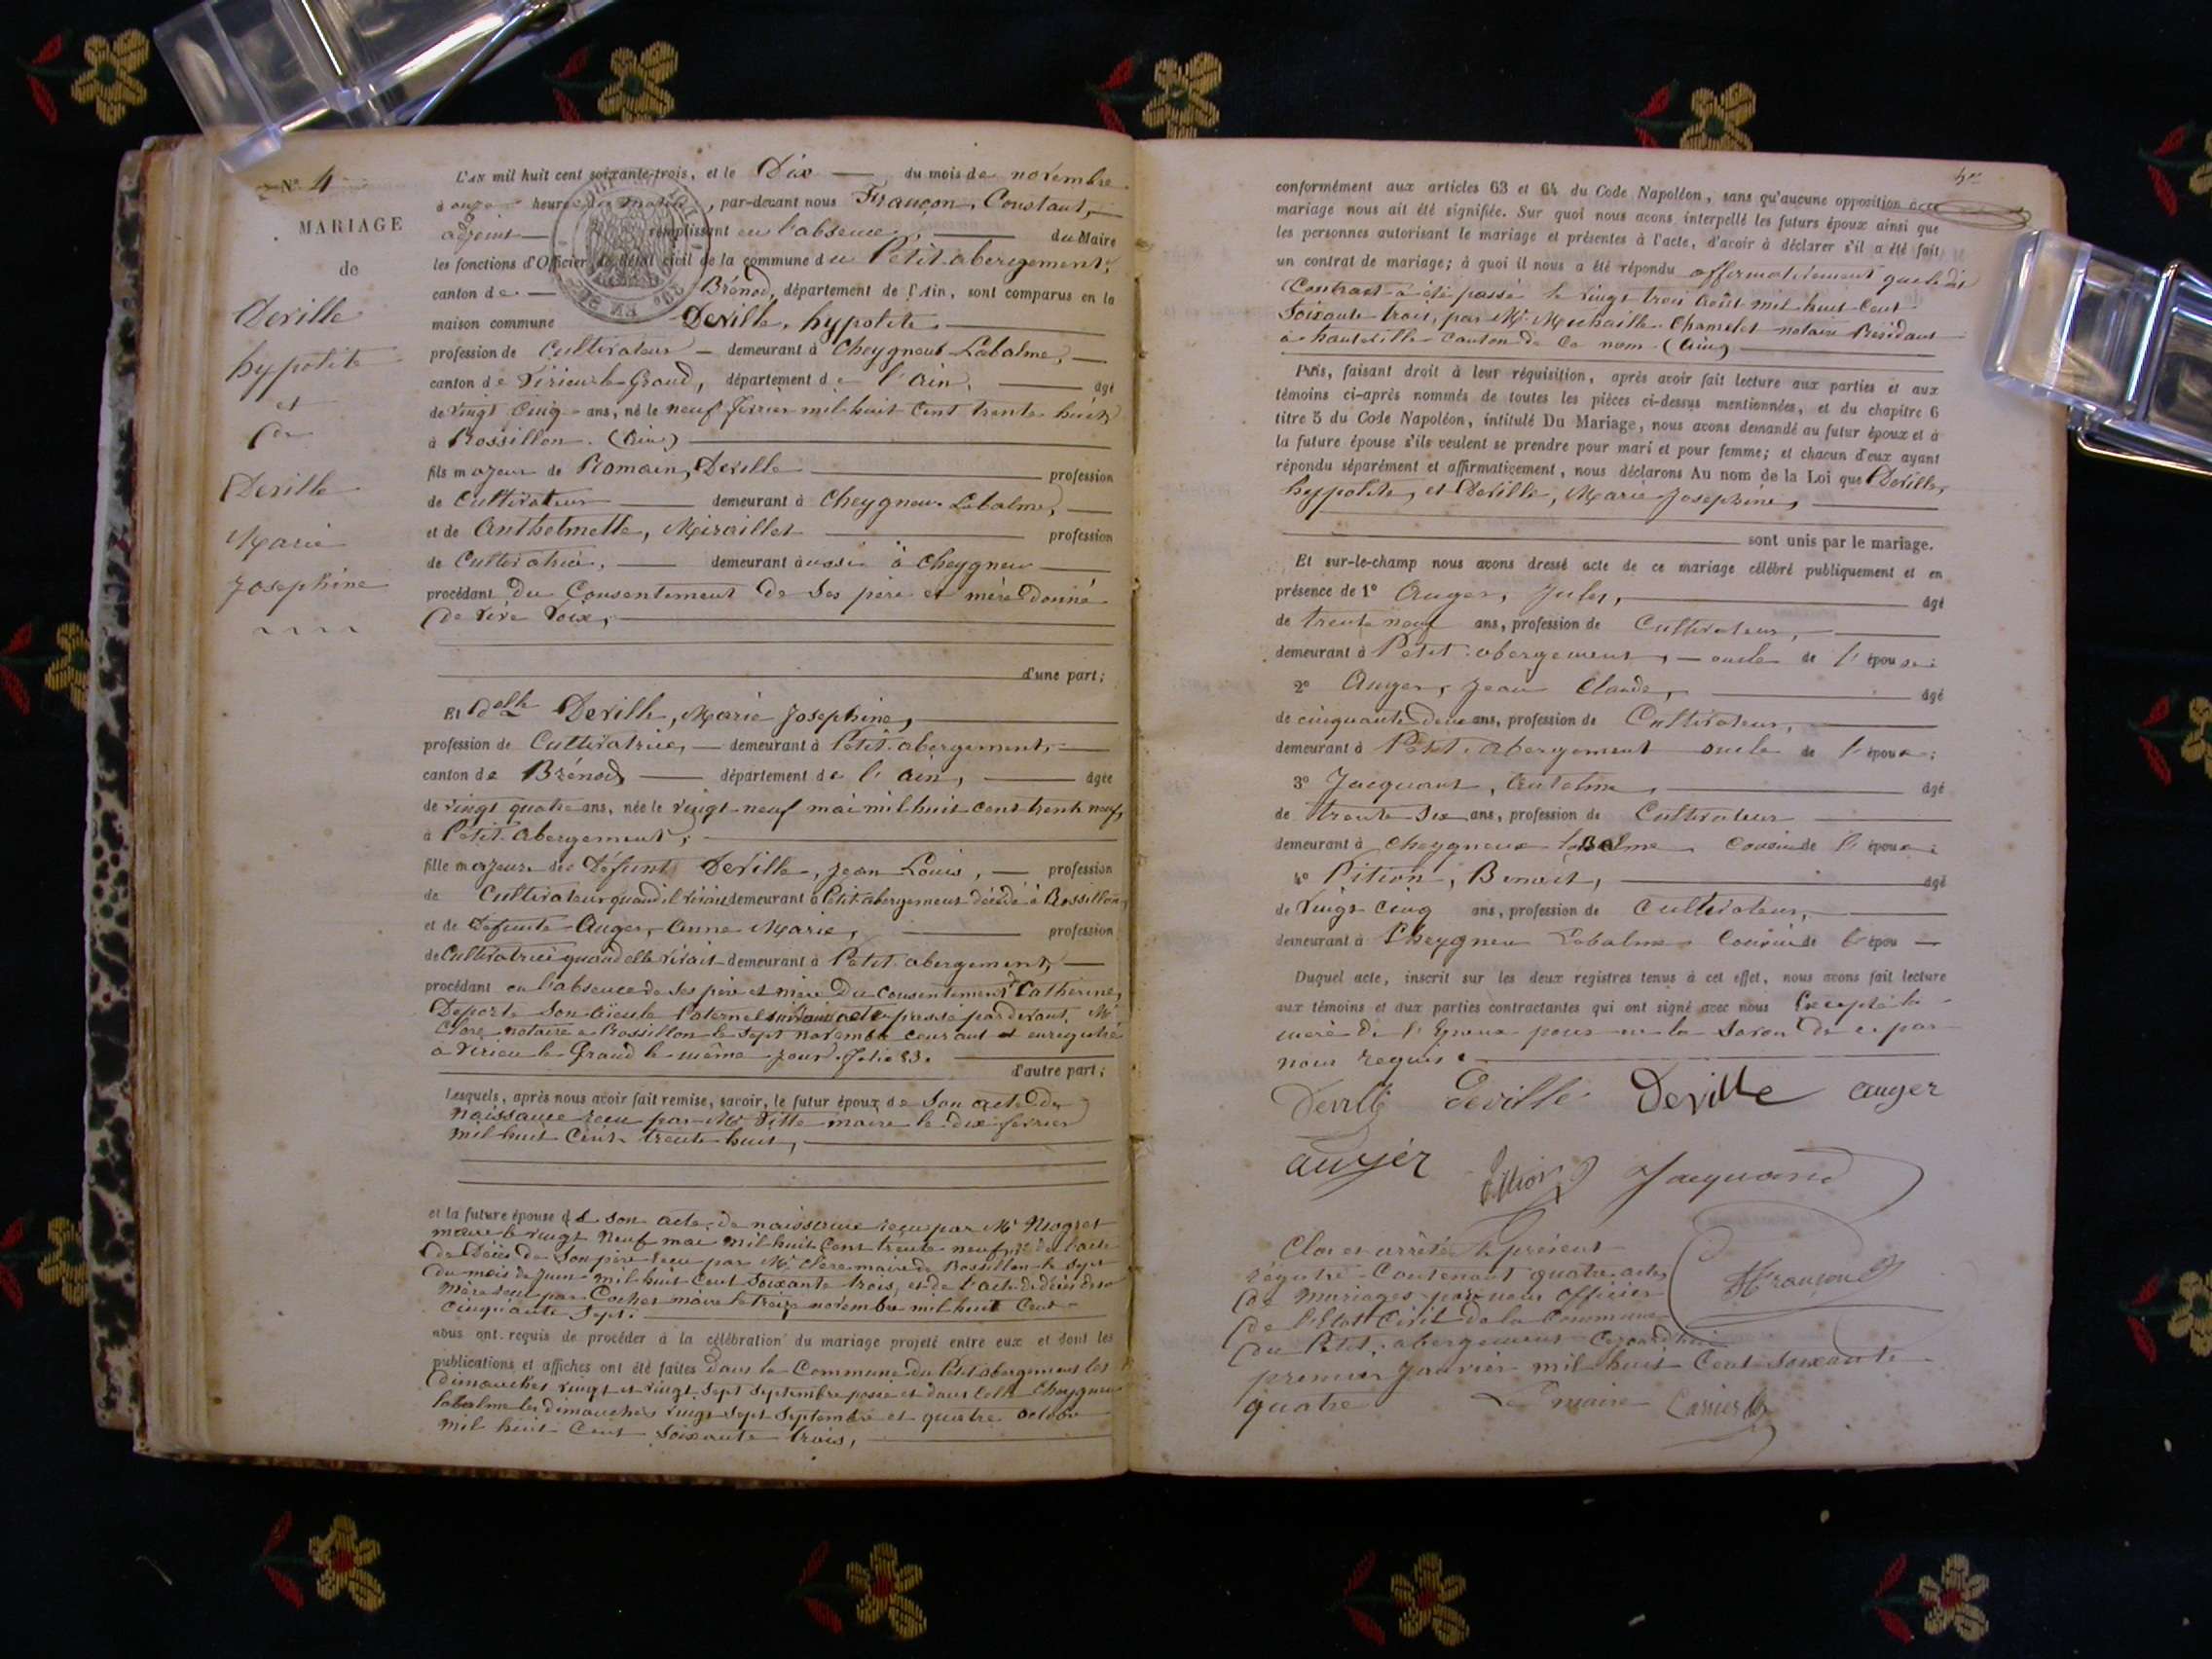 N° 4
MARIAGE
de
Deville
hypolite
et
Delle
Deville
Marie
Josephine
L'AN mil huit cent soixante-trois, et le Dix du mois de novembre
à onze heures du matin, par-devant nous Françon, Constant,
adjoint remplissant en l'absence du Maire
les fonctions d'Officier de l'état civil de la commune du Petit abergement,
canton de Brénod, département de l'Ain, sont comparus en la
maison commune Deville, hypolite
profession de Cultivateur demeurant à Cheygneu Labalme,
canton de Virieu-le-Grand, département de l'ain, âgé
de vingt cinq ans, né le neuf février mil huit cent trente huit
à Rossillon (Ain)
fils majeur de Romain, Deville profession
de Cultivateur demeurant à Cheygneu Labalme,
et de Anthelmette, Miraillet profession
de Cultivatrice, demeurant aussi à Cheygneu
procédant du Consentement de ses père et mère donné
de vive voix,
d'une part;
Et delle Deville, Marie Josephine,
profession de Cultivatrice, demeurant à Petit abergement,
canton de Brénod département de l'ain, âgée
de vingt quatre ans, née le vingt neuf mai mil huit cent trente neuf,
à Petit abergement,
fille majeure de Défunt Deville, Jean Louis, profession
de Cultivateur quand il vivait demeurant à Petit abergement décédé à Rossillon,
et de Défunte Auger, Anne Marie, profession
de Cultivatrice quand elle vivait demeurant à Petit abergement,
procédant en l'absence de ses père et mère Du Consentement de Catherine,
Deporte son aïeule Paternel suivant acte passé pardevant Me
Clerc notaire à Rossillon le sept novembre courant et enregistré
à Virieu le Grand le même jour folio 83.
d'autre part;
Lesquels, après nous avoir fait remise, savoir, le futur époux de Son acte de
naissance reçu par Mr Vitte maire le dix février
mil huit Cent trente huit,
et la future épouse de son acte de naissance reçu par Mr
maire le vingt neuf mai mil huit Cent trente neuf, de l'acte
de Décès de Son père reçu par Mr Clerc maire de Rossillon le sept
du mois de Juin mil huit Cent soixante trois, et de l'acte de décès de sa
mère reçu par Cochet maire le trois novembre mil huit Cent
cinquante sept.
nous ont requis de procéder à la célébration du mariage projeté entre eux et dont les
publications et affiches ont été faites dans la Commune du Petit abergement les
dimanches vingt et vingt sept Septembre passé et dans celle Cheygneu
labalme les dimanches vingt sept Septembre et quatre octobre
mil huit Cent soixante trois,
conformément aux articles 63 et 64 du Code Napoléon, sans qu'aucune opposition à ce
mariage nous ait été signifiée. Sur quoi nous avons interpellé les futurs époux ainsi que
les personnes autorisant le mariage et présentes à l'acte, d'avoir à déclarer s'il a été fait
un contrat de mariage; à quoi il nous a été répondu affirmativement que le dit
Contrat a été passé le vingt trois août mil huit Cent
Soixante trois, par Me Michaille Chamelet notaire Résidant
à hauteville Canton de Ce nom (Ain)
Puis, faisant droit à leur réquisition, après avoir fait lecture aux parties et aux
témoins ci-après nommés de toutes les pièces ci-dessus mentionnées, et du chapitre 6
titre 5 du Code Napoléon, intitulé Du Mariage, nous avons demandé au futur époux et à
la future épouse s'ils veulent se prendre pour mari et pour femme; et chacun d'eux ayant
répondu séparément et affirmativement, nous déclarons Au nom de la Loi que Deville,
hypolite, et Deville, Marie Josephine,
sont unis par le mariage.
Et sur-le-champ nous avons dressé acte de ce mariage célébré publiquement et en
présence de 1° Auger, Jules, âgé
de trente neuf ans, profession de Cultivateur,
demeurant à Petit abergement, oncle de l'épouse;
2° Auger, Jean Claude, âgé
de cinquante deux ans, profession de Cultivateur,
demeurant à Petit abergement oncle de l'épouse;
3° Jacquand, Antelme, âgé
de trente six ans, profession de Cultivateur
demeurant à Cheygneu laBalme Cousin de l'époux;
4° Pition, Benoit, âgé
de Vingt Cinq ans, profession de Cultivateur,
demeurant à Cheygneu Labalme Cousin de l'épou
Duquel acte, inscrit sur les deux registres tenus à cet effet, nous avons fait lecture
aux témoins et aux parties contractantes qui ont signé avec nous Excepté la
mère de l'Epoux pour ne la Savoir de ce par
nous requis.
Deville Deville Deville auger
auger Pition Jacquand
Clos et arrêté le présent
régistre Contenant quatre actes
de mariages par nous Officier
de l'Etat Civil de la Commune
du Petit abergement
premier Janvier mil huit Cent Soixante
quatre Le maire Carrier
Françon